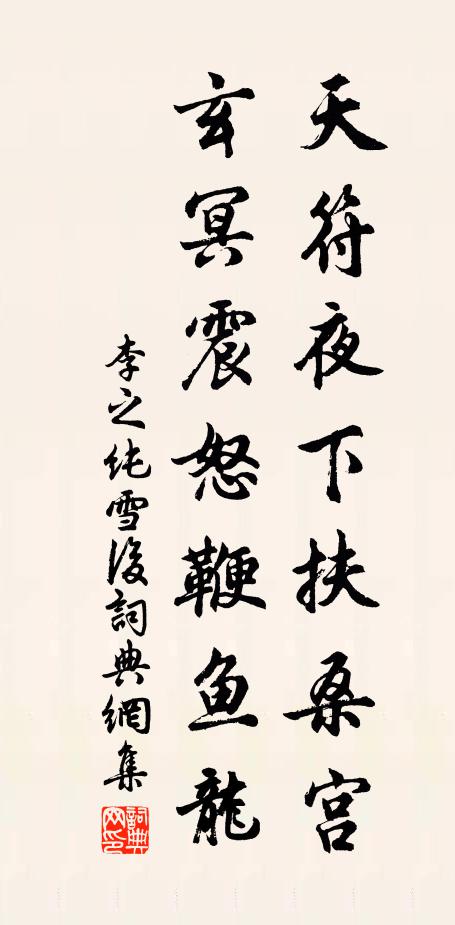 天符夜下扶桑宫
玄冥震怒鞭鱼龍
李之纯雪後詞典網集
詞典
网印